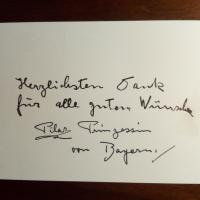 Herzlichsten Dank
für alle guten Wünsche
Pilar Prinzessin
von Bayern